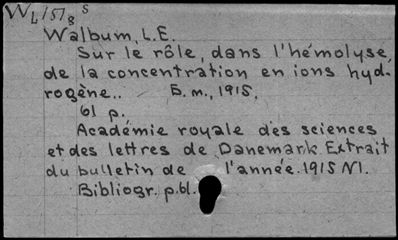 WL/5/8 S
Walbum, L.E.
Sur le rôle, dans l'hémolyse,
de la concentration en ions hyd-
rogène.. Б.m., 1915.
61 p.
Académie royale des sciences
et des lettres de Danemark Extrait
du bulletin de l'année.1915 N1.
Bibliogr. p.61.